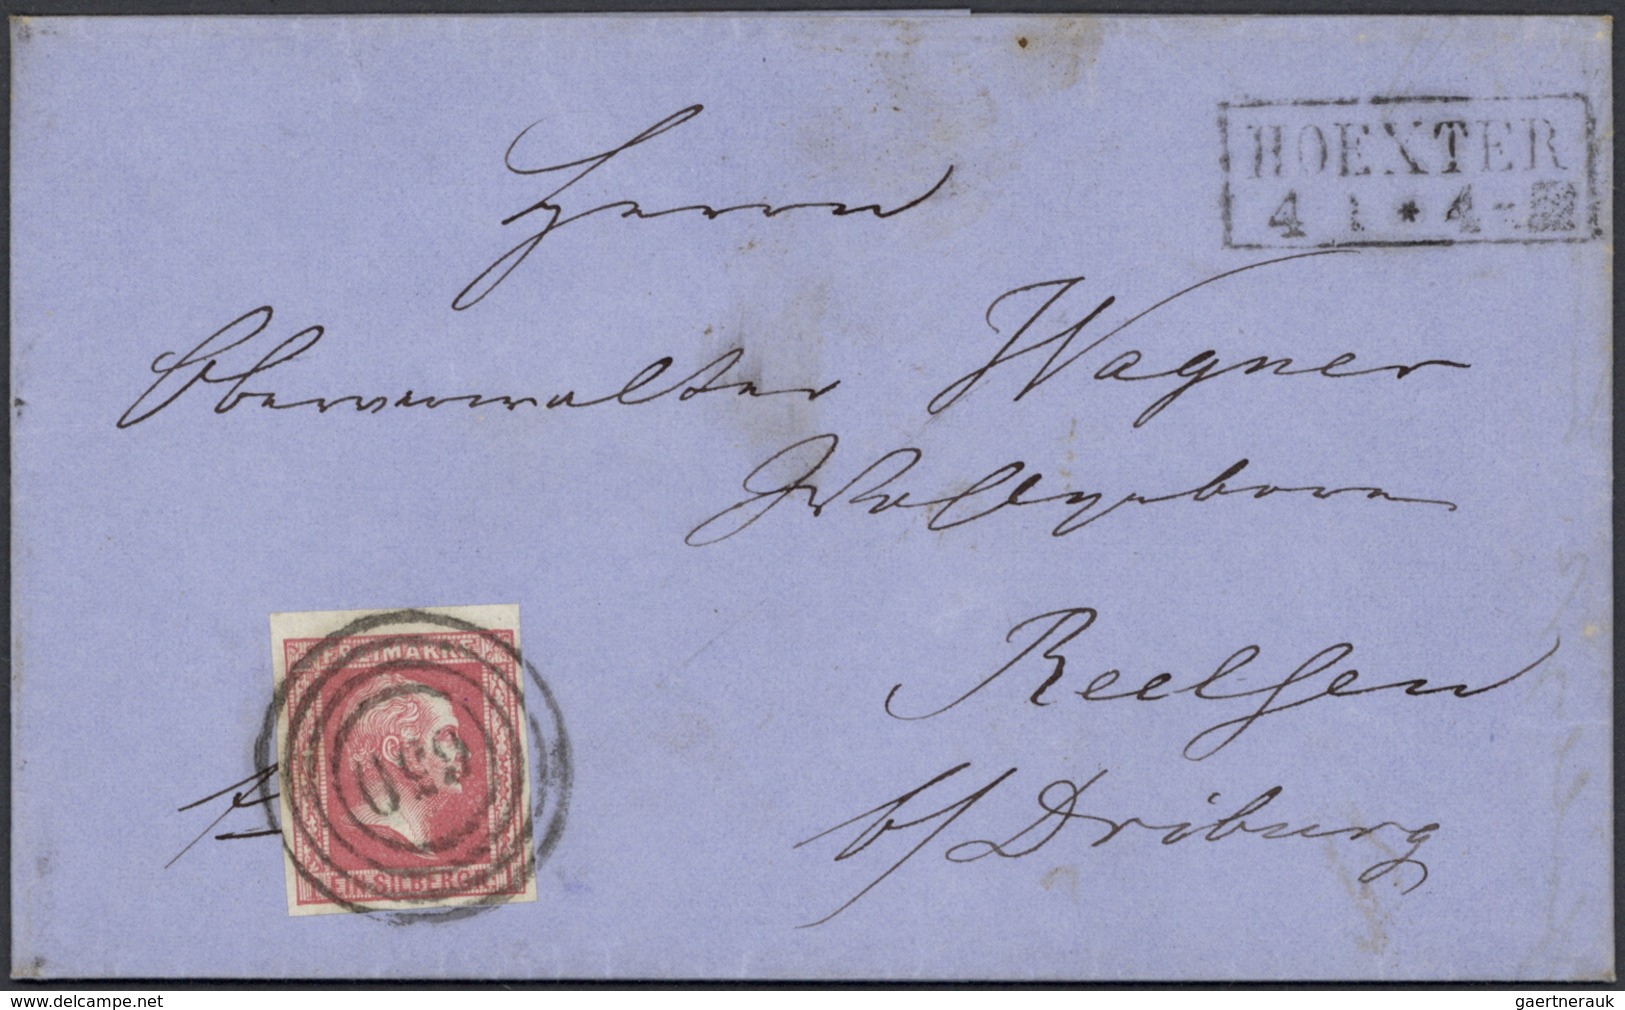 HOEXTER
4 1 * 4-
Herrn
Oberverwalter Wagner
Wohlgeboren
Reelsen
b/ Driburg
FREIMARKE
EIN SILBERGR.
delcampe.net
gaertnerauk